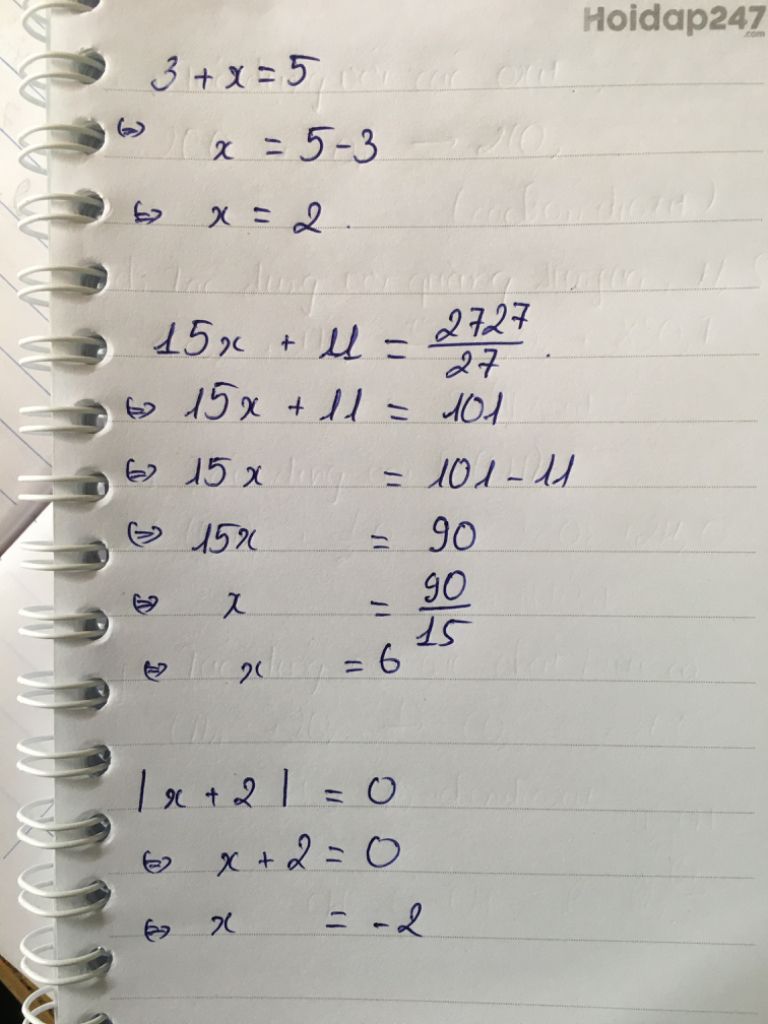 Hoidap247
.com
3 + x = 5
⇔ x = 5 - 3
⇔ x = 2 .
15x + 11 = 2727/27 .
⇔ 15x + 11 = 101
⇔ 15x = 101 - 11
⇔ 15x = 90
⇔ x = 90/15
⇔ x = 6
|x + 2| = 0
⇔ x + 2 = 0
⇔ x = -2